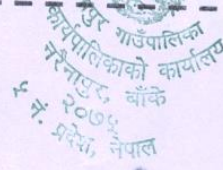 गाउँपालिका
कार्यपालिकाको कार्यालय
नरैनापुर, बाँके
२०७५
५ नं. प्रदेश, नेपाल